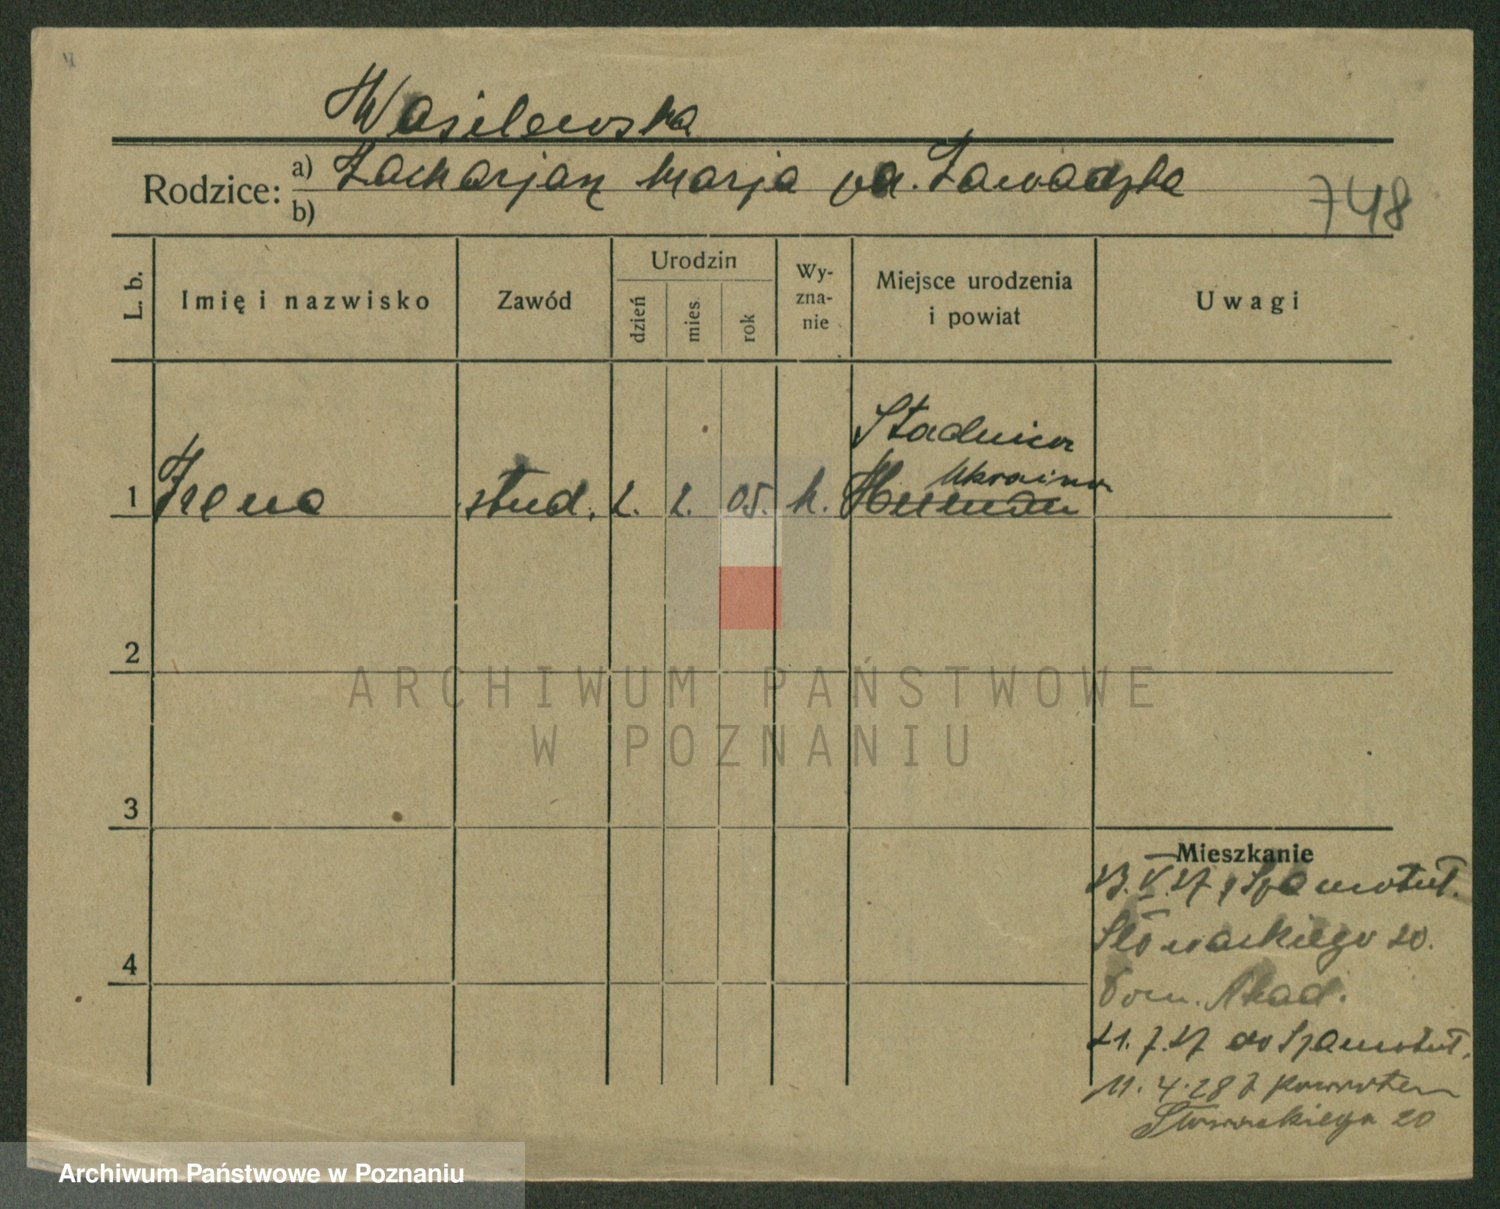 Wasilewska
Rodzice: a) Zacharjasz Marja ur. Zawadzka
b)
748
L. b. Imię i nazwisko Zawód Urodzin dzień mies. rok Wyznanie Miejsce urodzenia i powiat Uwagi
Stadnica
Ukraina
1 Irena stud. 2. 2. 05. k.
2
ARCHIWUM PAŃSTWOWE
W POZNANIU
3
Mieszkanie
23.V.27 z Szamotuł.
Słowackiego 20.
4
Dom. Akad.
21.7.27 do Szamotuł.
11.4.28 z powrotem
Słowackiego 20
Archiwum Państwowe w Poznaniu